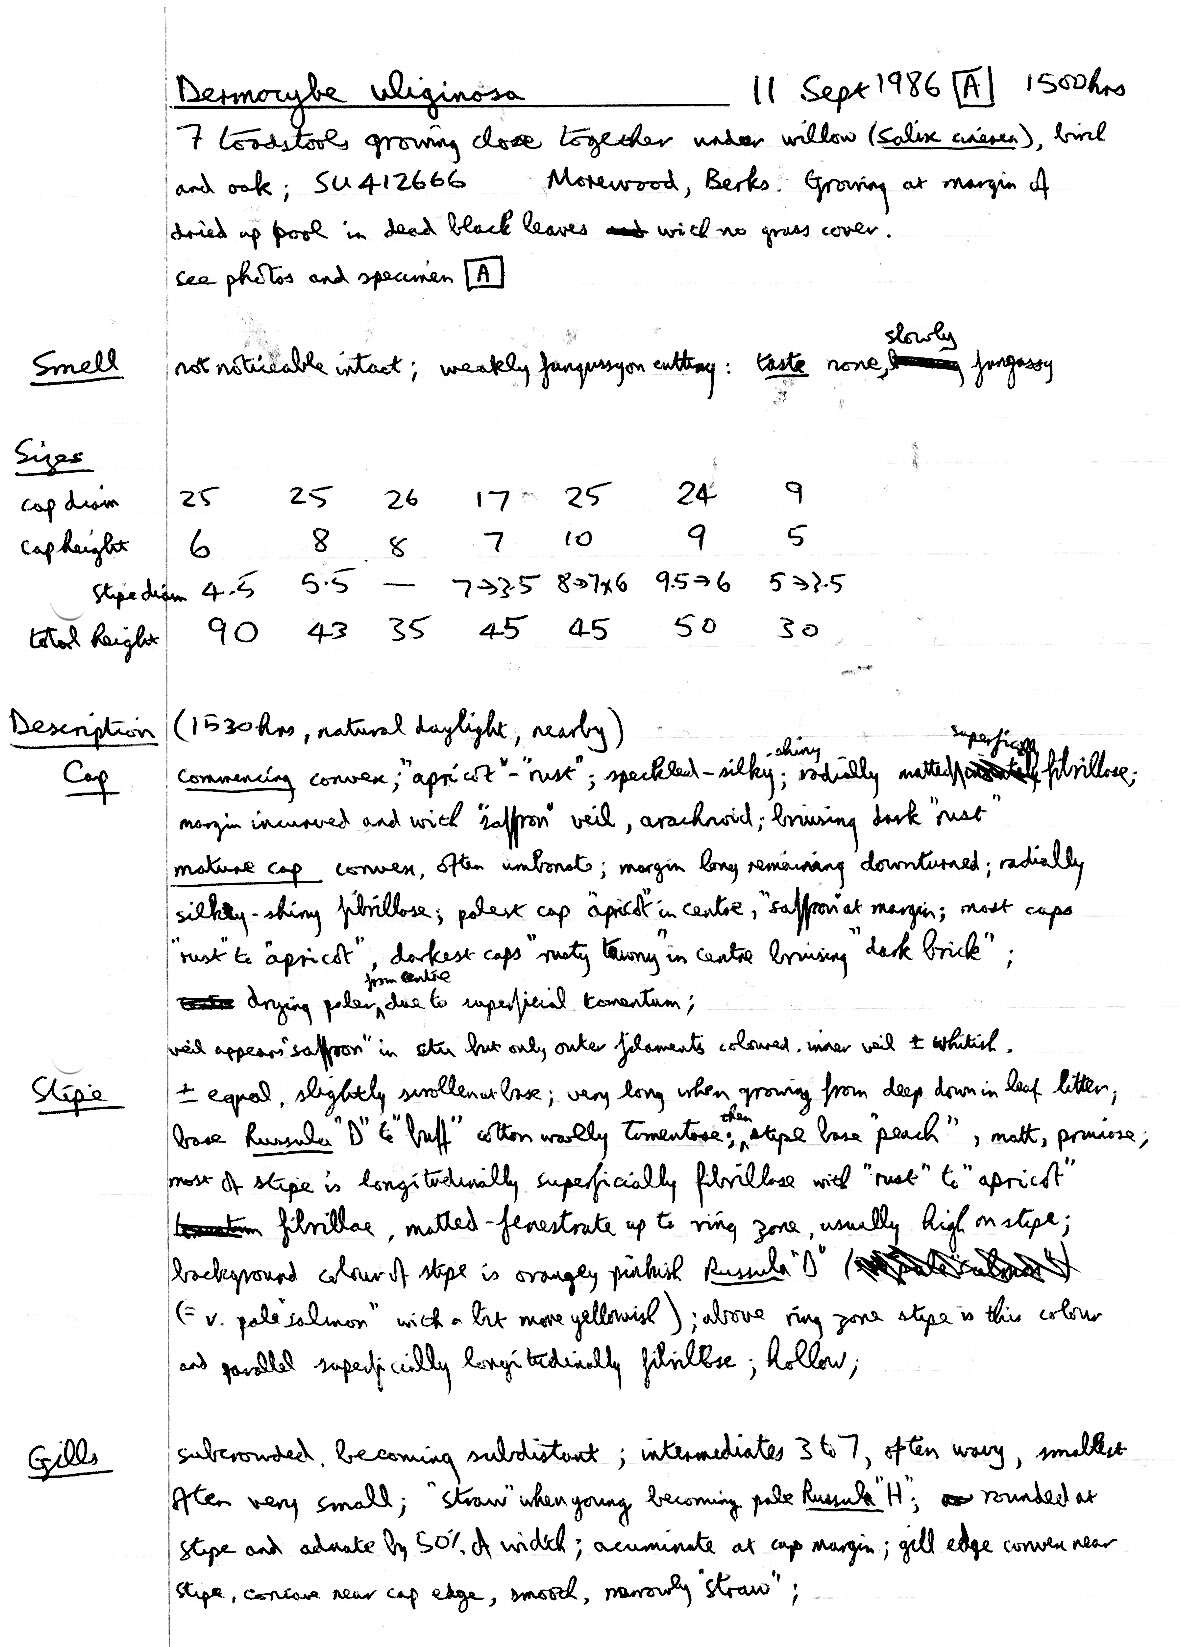 Dermocybe uliginosa 11 Sept 1986 [A] 1500hrs
7 toadstools growing close together under willow (Salix cinerea), birch
and oak; SU412666 Morewood, Berks. Growing at margin of
dried up pool in dead black leaves with no grass cover.
see photos and specimen [A]
Smell not noticeable intact; weakly fungussy on cutting: taste none, slowly fungassy
Sizes
cap diam 25 25 26 17 25 24 9
cap height 6 8 8 7 10 9 5
stipe diam 4.5 5.5 — 7→3.5 8→7x6 9.5→6 5→3.5
total height 90 43 35 45 45 50 30
Description (1530hrs, natural daylight, nearby)
Cap commencing convex; "apricot"-"rust"; speckled-silky-shiny; radially matted superficially fibrillose;
margin incurved and with "saffron" veil, arachnoid; bruising dark "rust"
mature cap convex, often umbonate; margin long remaining downturned; radially
silky-shiny fibrillose; palest cap "apricot" in centre, "saffron" at margin; most caps
"rust" to "apricot", darkest caps "rusty tawny" in centre bruising "dark brick";
drying paler from centre, due to superficial tomentum;
veil appears "saffron" in situ but only outer filaments coloured. inner veil ± whitish.
Stipe ± equal, slightly swollen at base; very long when growing from deep down in leaf litter;
base Russula "D" to "buff" cotton woolly tomentose; then stipe base "peach", matt, pruinose;
most of stipe is longitudinally superficially fibrillose with "rust" to "apricot"
fibrillae, matted-fenestrate up to ring zone, usually high on stipe;
background colour of stipe is orangey pinkish Russula "D"
(= v. pale "salmon" with a bit more yellowish); above ring zone stipe is this colour
and parallel superficially longitudinally fibrillose; hollow;
Gills subcrowded, becoming subdistant; intermediates 3 to 7, often wavy, smallest
often very small; "straw" when young becoming pale Russula "H"; rounded at
stipe and adnate by 50% of width; acuminate at cap margin; gill edge convex near
stipe, concave near cap edge, smooth, narrowly "straw";